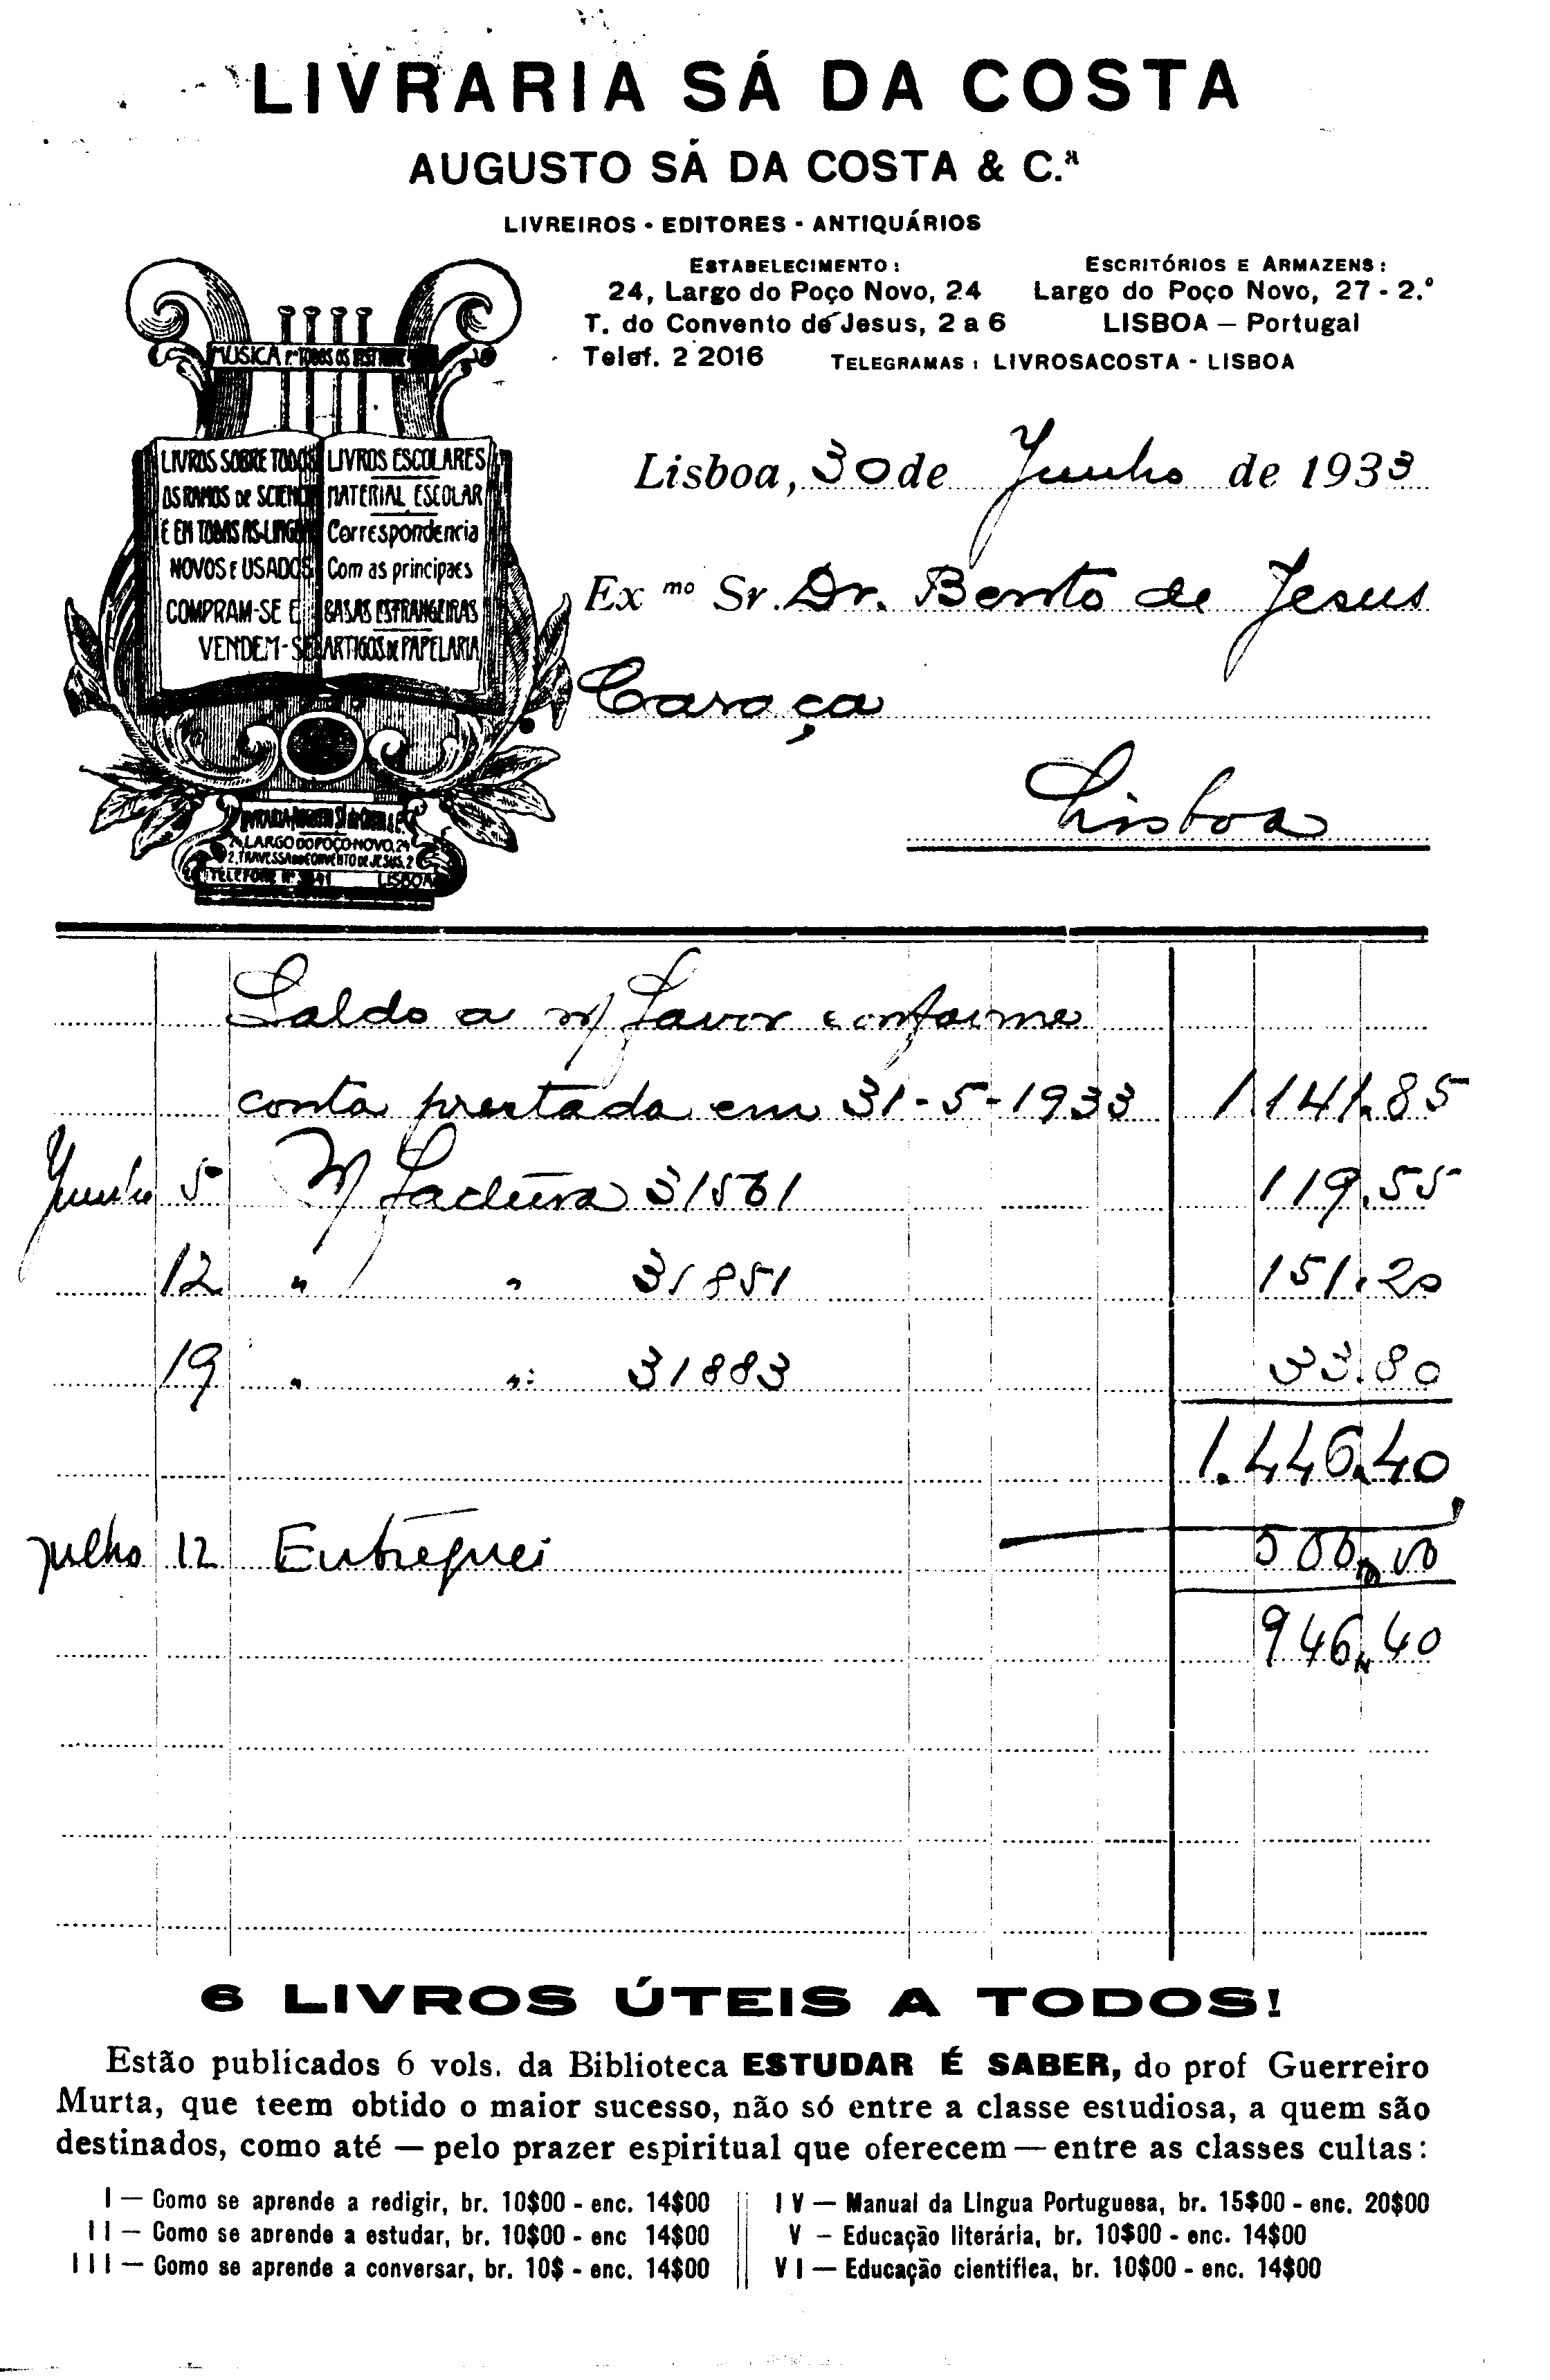 LIVRARIA SÁ DA COSTA
AUGUSTO SÁ DA COSTA & C.ª
LIVREIROS - EDITORES - ANTIQUÁRIOS
ESTABELECIMENTO:
24, Largo do Poço Novo, 24
T. do Convento de Jesus, 2 a 6
Telef. 2 2016
ESCRITÓRIOS E ARMAZENS:
Largo do Poço Novo, 27 - 2.º
LISBOA — Portugal
TELEGRAMAS: LIVROSACOSTA - LISBOA
MUSICA P.ª TODOS OS
LIVROS SOBRE TODOS
OS RAMOS DE SCIENCIA
E EM TODAS AS LINGUAS
NOVOS E USADOS
COMPRAM-SE E
VENDEM-SE
LIVROS ESCOLARES
MATERIAL ESCOLAR
Correspondencia
Com as principaes
CASAS ESTRANGEIRAS
ARTIGOS DE PAPELARIA
24, LARGO DO POÇO NOVO, 24
2, TRAVESSA DO CONVENTO DE JESUS, 2
TELEFONE Nº LISBOA
Lisboa, 30 de Junho de 1933
Ex mo Sr. Dr. Bento de Jesus
Caraça
Lisboa
Saldo a n/ favor conforme
conta prestada em 31-5-1933 1.141.85
Junho 5 N/ factura 31561 119.55
12 " " 31851 151.20
19 " " 31883 33.80
1.446.40
julho 12 Entreguei 500,00
946,40
6 LIVROS ÚTEIS A TODOS!
Estão publicados 6 vols. da Biblioteca ESTUDAR É SABER, do prof Guerreiro
Murta, que teem obtido o maior sucesso, não só entre a classe estudiosa, a quem são
destinados, como até — pelo prazer espiritual que oferecem — entre as classes cultas:
I — Como se aprende a redigir, br. 10$00 - enc. 14$00
II — Como se aprende a estudar, br. 10$00 - enc 14$00
III — Como se aprende a conversar, br. 10$ - enc. 14$00
IV — Manual da Lingua Portuguesa, br. 15$00 - enc. 20$00
V – Educação literária, br. 10$00 - enc. 14$00
VI — Educação científica, br. 10$00 - enc. 14$00